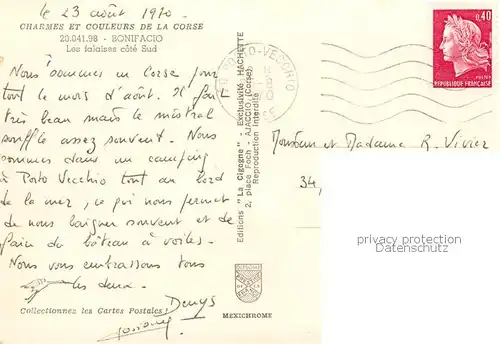 le 23 août 1970.
CHARMES ET COULEURS DE LA CORSE
20.041.98 - BONIFACIO
Les falaises côté Sud
Nous sommes en Corse pour
tout le mois d'août. Il fait
très beau mais le mistral
souffle assez souvent. Nous
sommes dans un camping
à Porto Vecchio tout au bord
de la mer, ce qui nous permet
de nous baigner souvent et de
faire du bâteau à voiles.
Nous vous embrassons tous
les deux.
Denys
Collectionnez les Cartes Postales !
Editions "La Cigogne" - Exclusivité HACHETTE
2, place Foch - AJACCIO (Corse)
Reproduction Interdite
MEXICHROME
PORTO-VECCHIO
0,40
REPUBLIQUE FRANÇAISE
POSTES
Monsieur et Madame R. Vivier
34,
privacy protection
Datenschutz